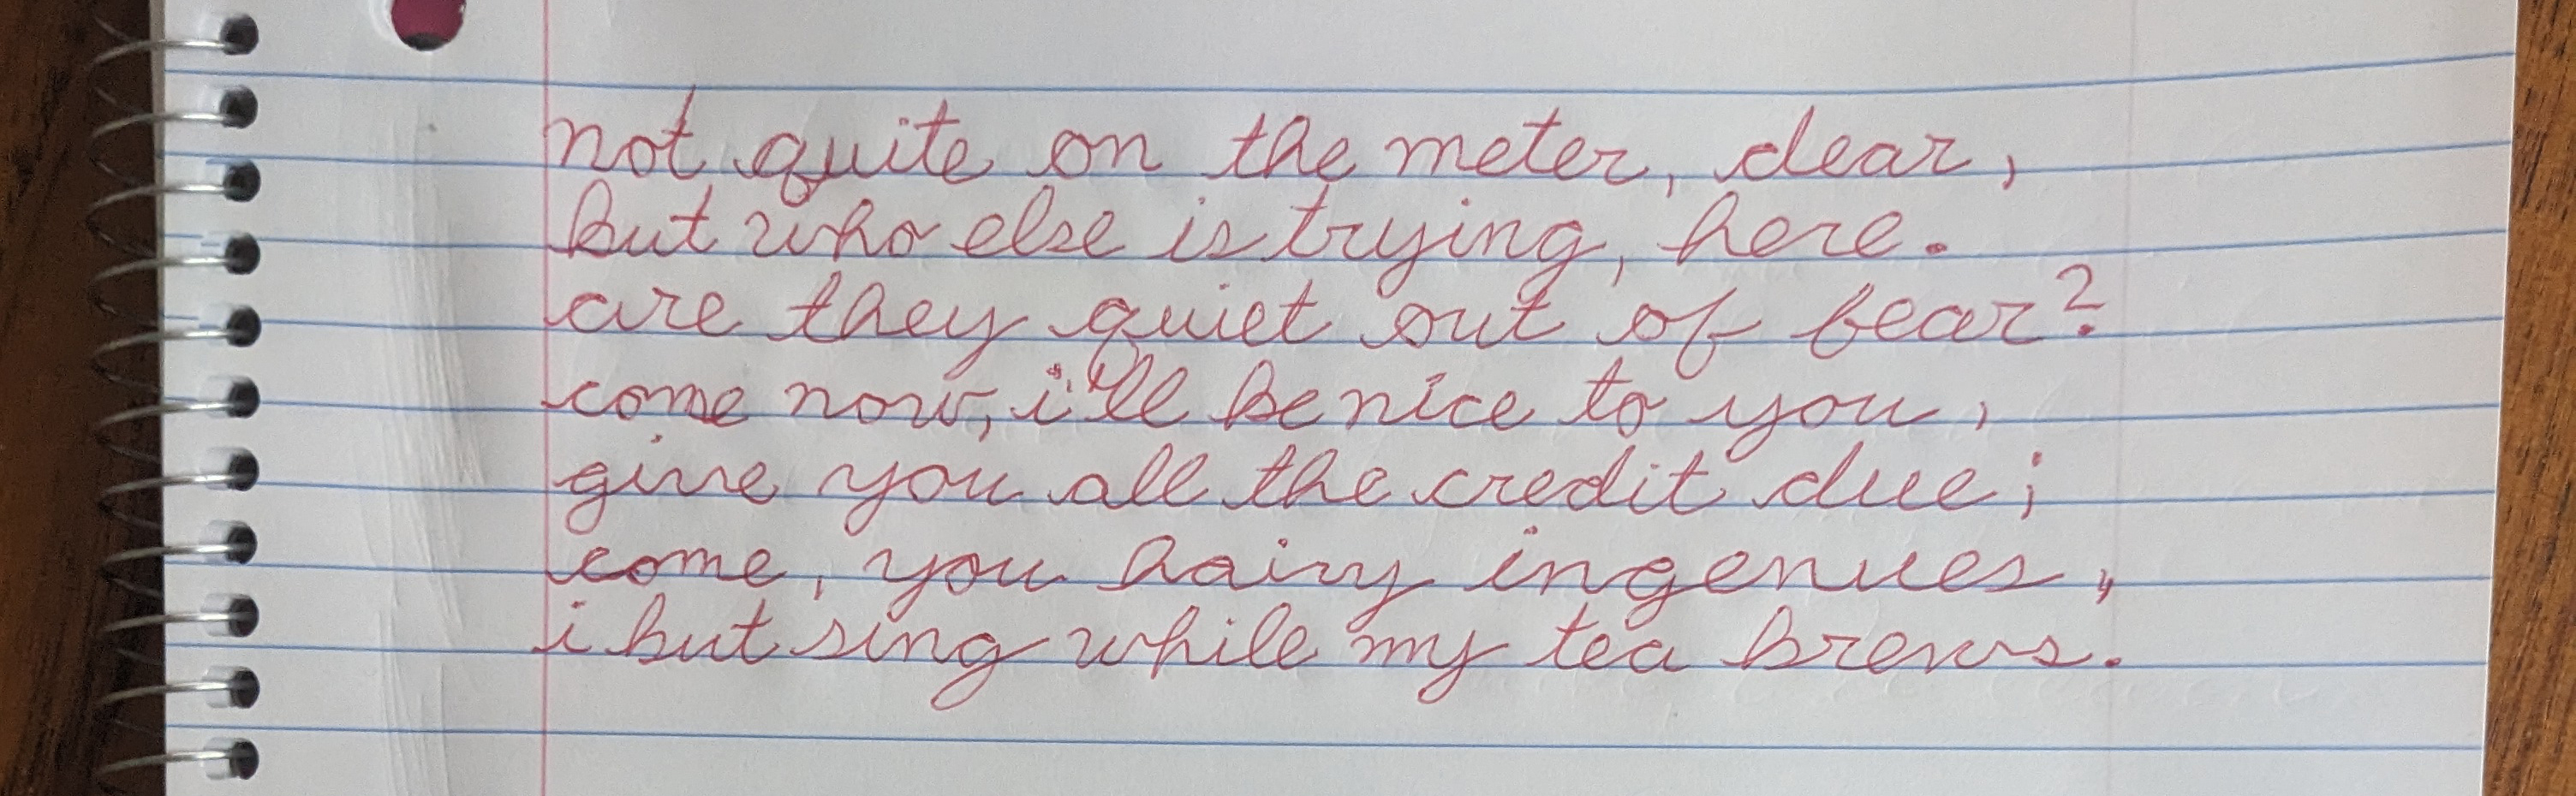 not quite on the meter, dear,
but who else is trying, here.
are they quiet out of fear?
come now, i'll be nice to you,
give you all the credit due;
come, you hairy ingenues,
i but sing while my tea brews.